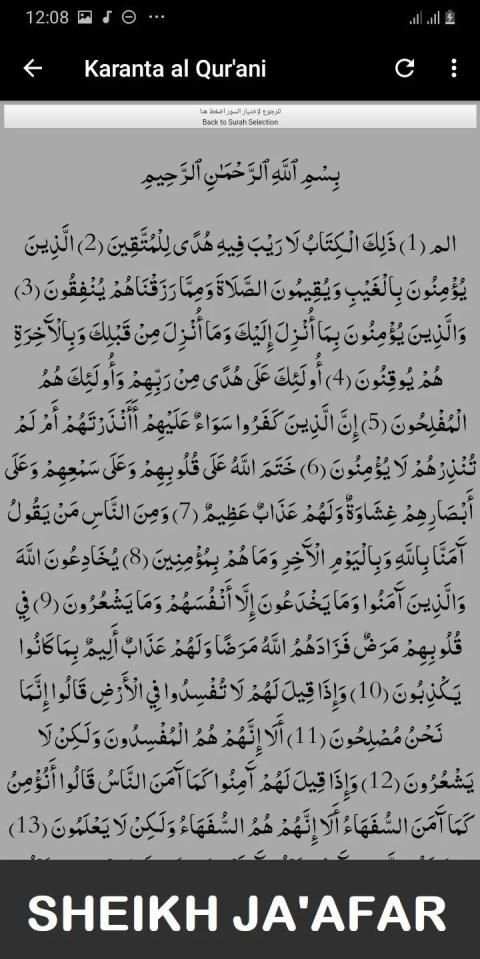 12:08
Karanta al Qur'ani
للرجوع لاختيار السور اضغط هنا
Back to Surah Selection
بِسْمِ ٱللَّهِ ٱلرَّحْمَٰنِ ٱلرَّحِيمِ
الم (1) ذَلِكَ الْكِتَابُ لَا رَيْبَ فِيهِ هُدًى لِلْمُتَّقِينَ (2) الَّذِينَ
يُؤْمِنُونَ بِالْغَيْبِ وَيُقِيمُونَ الصَّلَاةَ وَمِمَّا رَزَقْنَاهُمْ يُنْفِقُونَ (3)
وَالَّذِينَ يُؤْمِنُونَ بِمَا أُنْزِلَ إِلَيْكَ وَمَا أُنْزِلَ مِنْ قَبْلِكَ وَبِالْآَخِرَةِ
هُمْ يُوقِنُونَ (4) أُولَئِكَ عَلَى هُدًى مِنْ رَبِّهِمْ وَأُولَئِكَ هُمُ
الْمُفْلِحُونَ (5) إِنَّ الَّذِينَ كَفَرُوا سَوَاءٌ عَلَيْهِمْ أَأَنْذَرْتَهُمْ أَمْ لَمْ
تُنْذِرْهُمْ لَا يُؤْمِنُونَ (6) خَتَمَ اللَّهُ عَلَى قُلُوبِهِمْ وَعَلَى سَمْعِهِمْ وَعَلَى
أَبْصَارِهِمْ غِشَاوَةٌ وَلَهُمْ عَذَابٌ عَظِيمٌ (7) وَمِنَ النَّاسِ مَنْ يَقُولُ
آَمَنَّا بِاللَّهِ وَبِالْيَوْمِ الْآَخِرِ وَمَا هُمْ بِمُؤْمِنِينَ (8) يُخَادِعُونَ اللَّهَ
وَالَّذِينَ آَمَنُوا وَمَا يَخْدَعُونَ إِلَّا أَنْفُسَهُمْ وَمَا يَشْعُرُونَ (9) فِي
قُلُوبِهِمْ مَرَضٌ فَزَادَهُمُ اللَّهُ مَرَضًا وَلَهُمْ عَذَابٌ أَلِيمٌ بِمَا كَانُوا
يَكْذِبُونَ (10) وَإِذَا قِيلَ لَهُمْ لَا تُفْسِدُوا فِي الْأَرْضِ قَالُوا إِنَّمَا
نَحْنُ مُصْلِحُونَ (11) أَلَا إِنَّهُمْ هُمُ الْمُفْسِدُونَ وَلَكِنْ لَا
يَشْعُرُونَ (12) وَإِذَا قِيلَ لَهُمْ آَمِنُوا كَمَا آَمَنَ النَّاسُ قَالُوا أَنُؤْمِنُ
كَمَا آَمَنَ السُّفَهَاءُ أَلَا إِنَّهُمْ هُمُ السُّفَهَاءُ وَلَكِنْ لَا يَعْلَمُونَ (13)
SHEIKH JA'AFAR